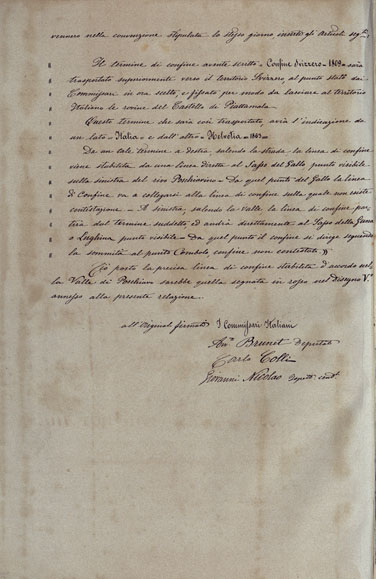 vennero nella convenzione stipulata lo stesso giorno, inserto gli Articoli seg.ti
" Il termine di confine avente scritto - Confine Svizzero - 1809 - sarà
" trasportato superiormente verso il territorio Svizzero al punto stabilito dai
" Commissari in ora scelto, e fissato per modo da lasciare al territorio
" Italiano le rovine del Castello di Piattamala.
" Questo termine che sarà così trasportato, avrà l'indicazione da
" un lato - Italia - e dall'altro - Helvetia - 1863 -
" Da un tale termine a destra salendo la strada la linea di confine
" viene stabilita da una linea diretta al Sasso del Gallo punto visibile
" sulla sinistra del rio Poschiavino - Da quel punto del Gallo la linea
" di Confine va a collegarsi alla linea di confine sulla quale non esiste
" contestazione - A sinistra, salendo la valle la linea di confine par-
" tirà dal termine suddetto ed andrà direttamente al Sasso della
" o punto visibile - Da quel punto il confine si dirige seguendo
" la sommità al punto Combolo confine non contestato "
Ciò posto la precisa linea di confine stabilita d'accordo nel-
la Valle di Poschiavo sarebbe quella segnata in rosso nel Disegno V.
annesso alla presente relazione.
all'Original firmato I Commissari Italiani
Brunet Deputato
Carlo Colli
Giovanni Nicolao